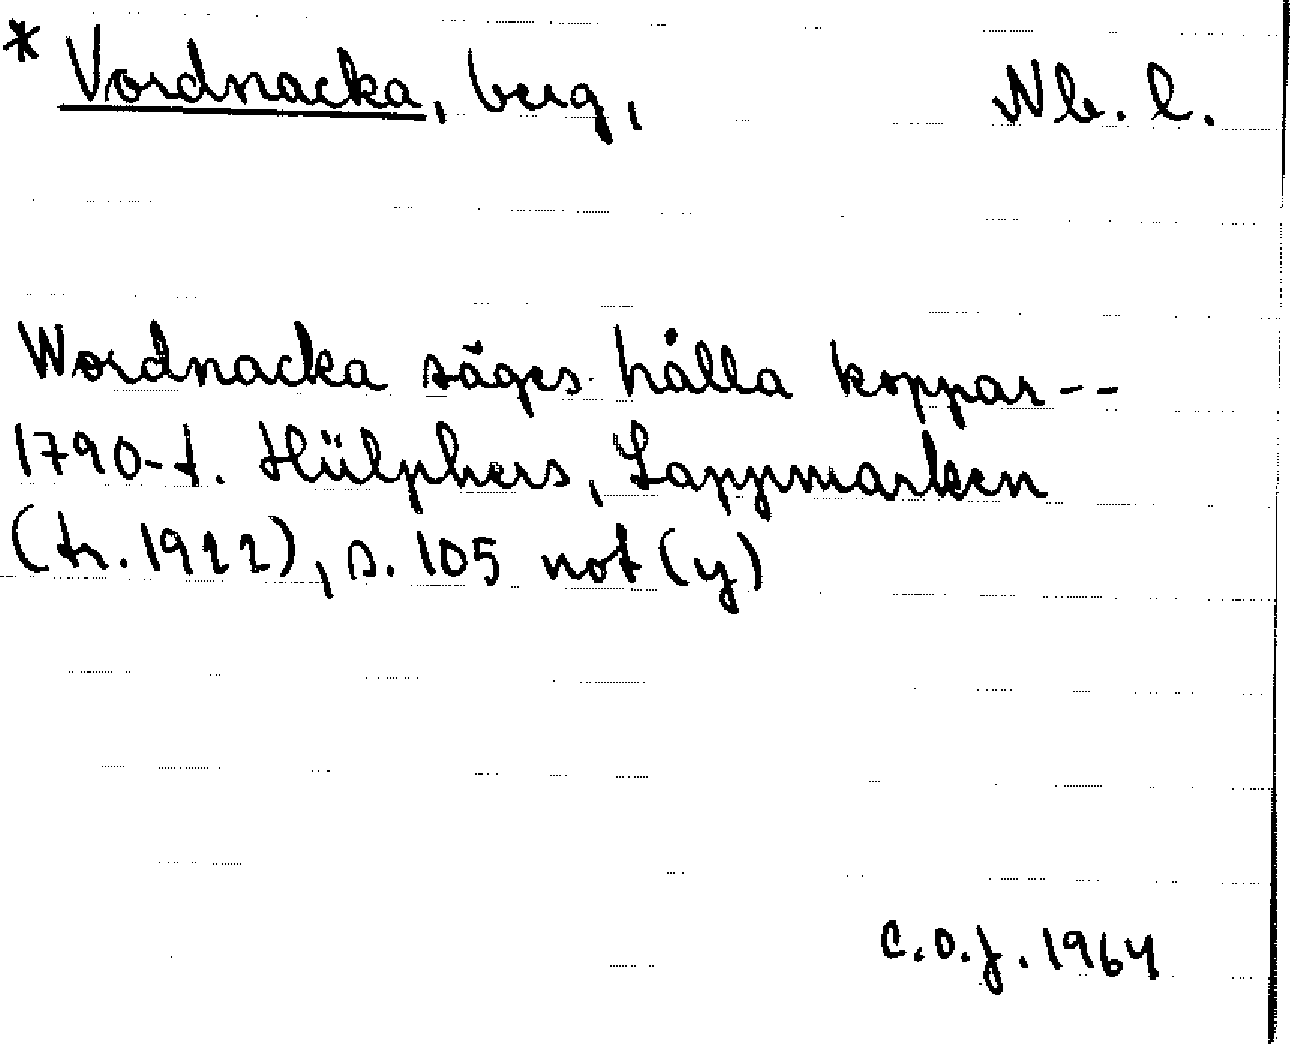 * Vordnacka, berg, Nb. l.
Wordnacka säges hålla koppar--
1790-t. Hülphers, Lappmarken
(tr. 1922), s. 105 not (y)
C.O.J. 1964